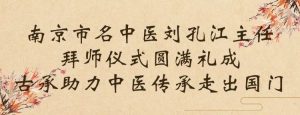 南京市名中医刘孔江主任
拜师仪式圆满礼成
古承助力中医传承走出国门